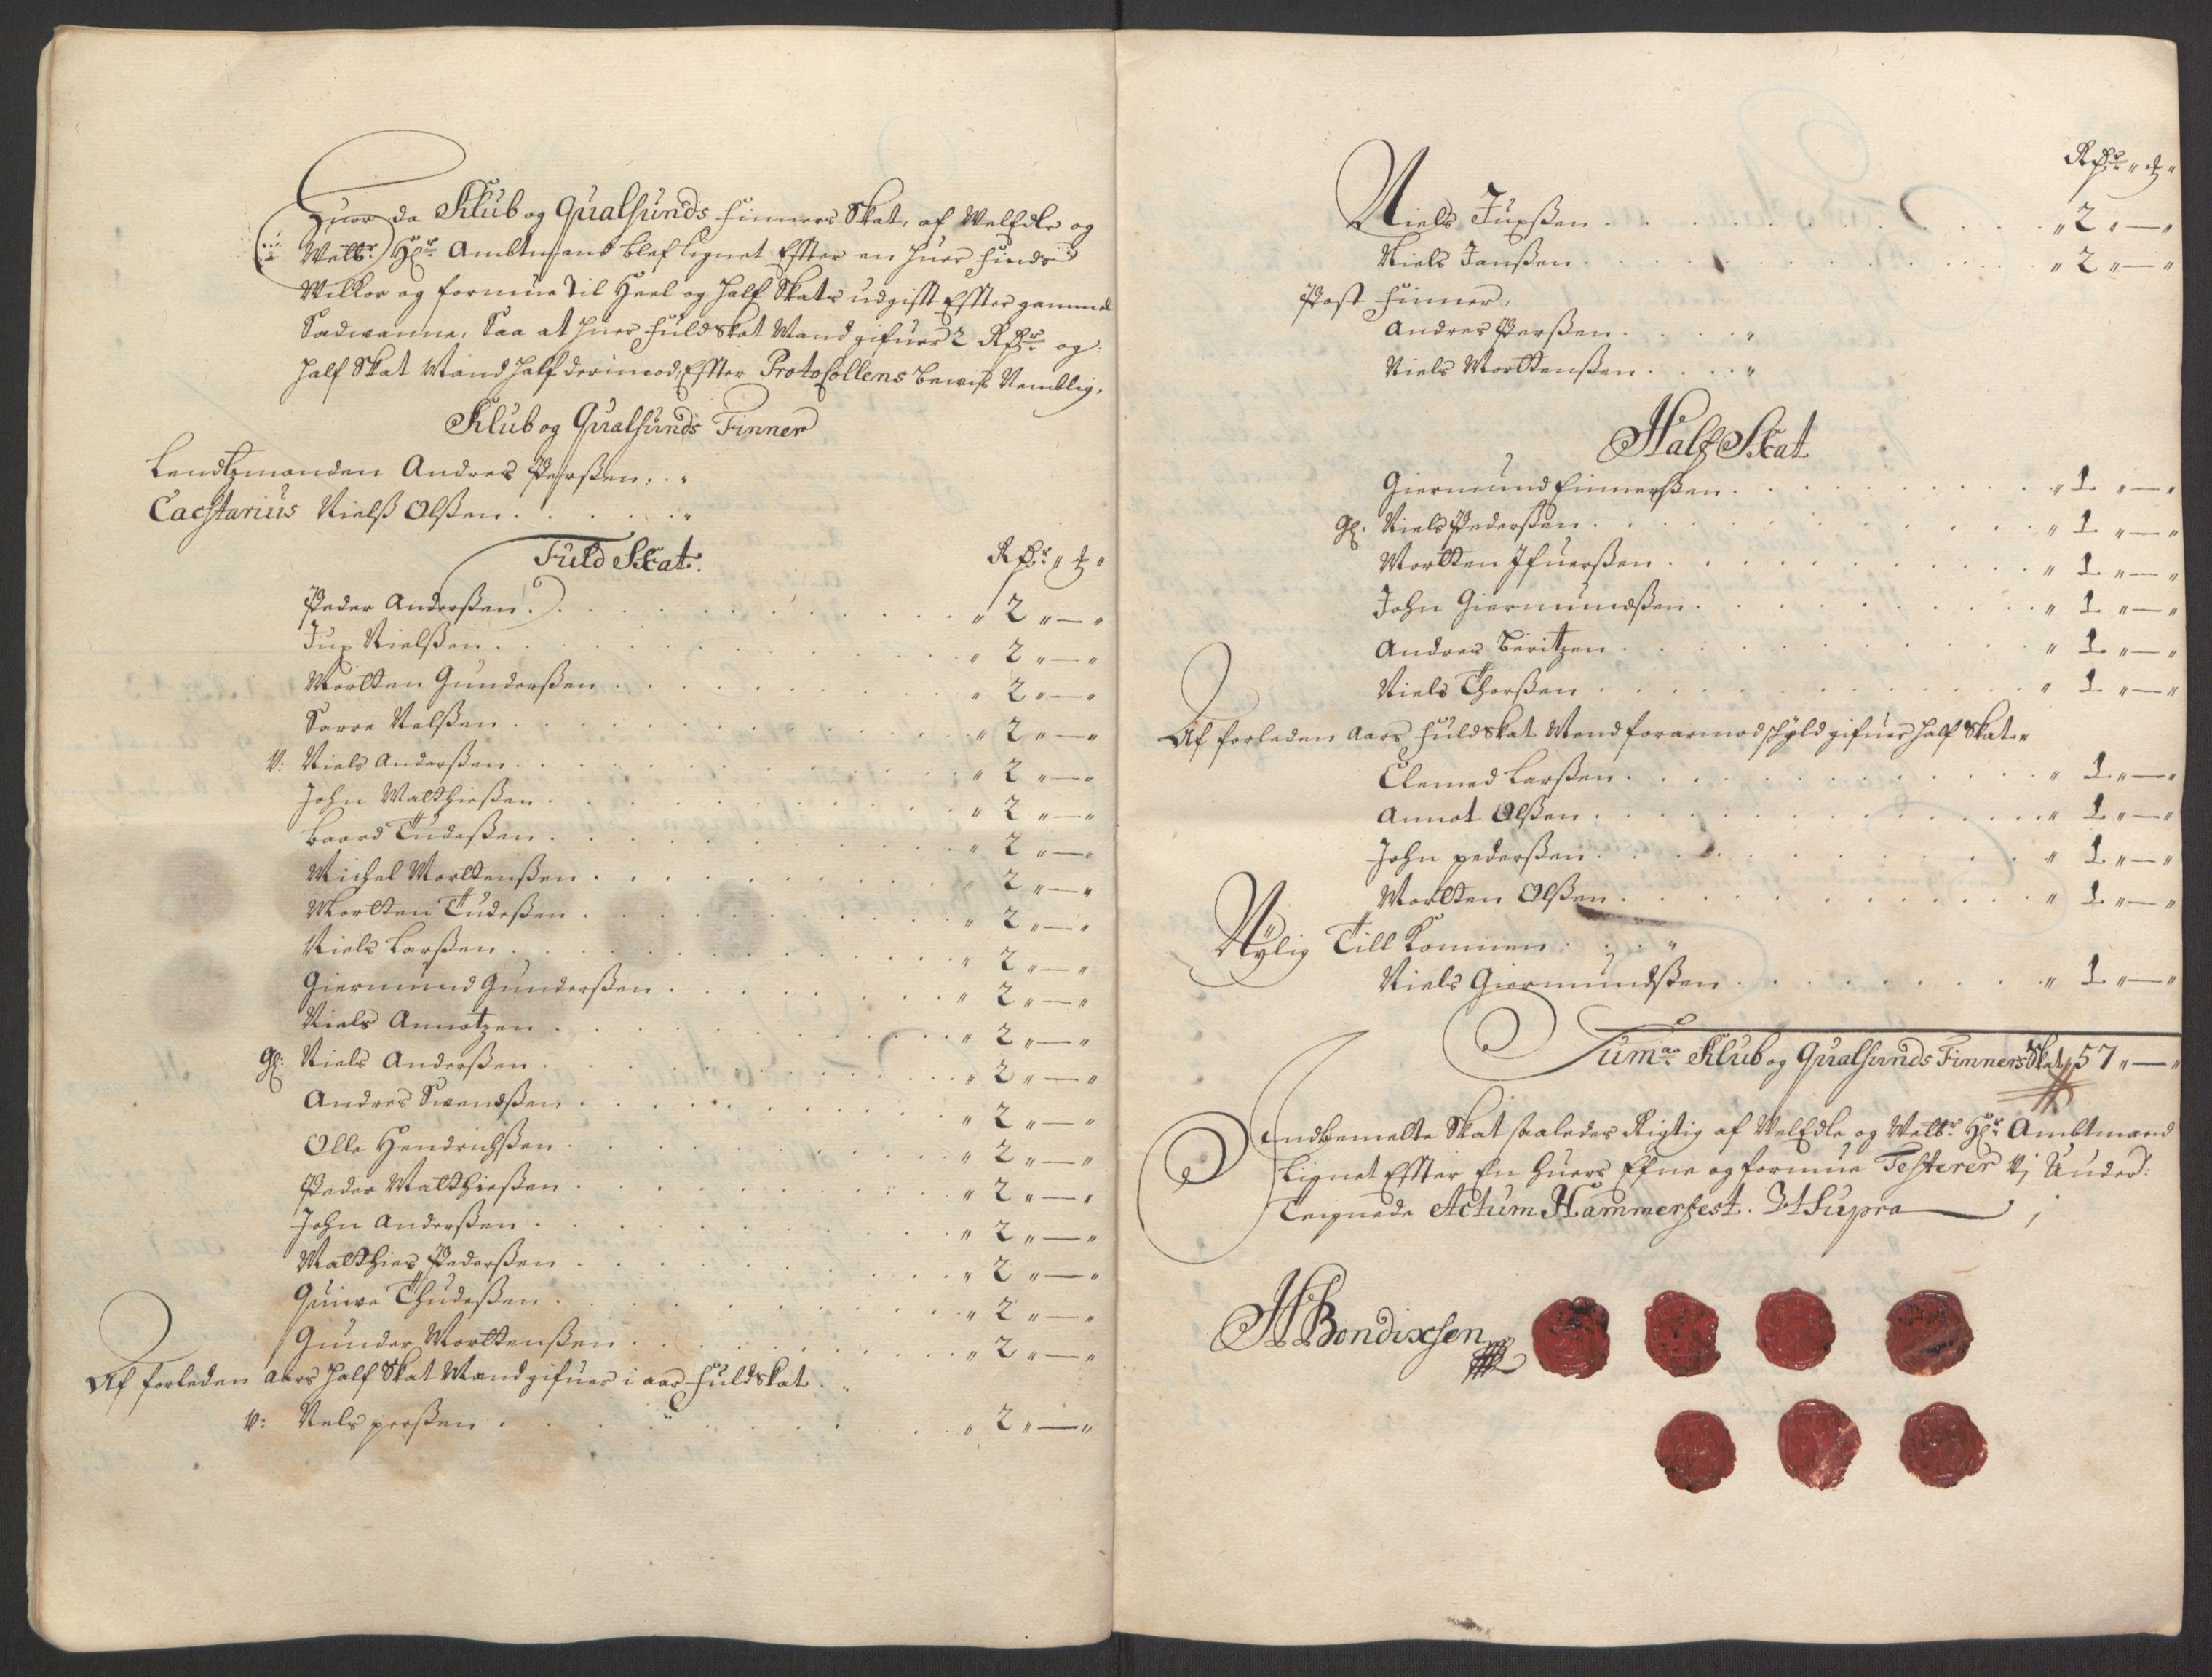 Huor da Klub og Qualsunds finners Skat, af WelEdle og
Welbr: Hr: Ambtmand blef lignet Effter en huer finds
Wilkor og formue til Heel og half Skats udgifft Effter gammel
Sædwanne, Saa at huer fuldskat Mand gifuer 2 Rdr og
half Skat Mand half derimod, Effter Protocollens bewis Nemblig,
Klub og Qualsunds Finner
Lendtzmanden Andres Perßen . . "
Cachtarius Nielß Olßen . . . . "
Fuld Skat. Rdr " ß "
Peder Anderßen . . . " 2 " — "
Jup Nielßen . . . " 2 " — "
Mortten Gunderßen . . . " 2 " — "
Sarre Nelßen . . . " 2 " — "
V: Niels Anderßen . . . " 2 " — "
John Matthießen . . . " 2 " — "
Baard Tudeßen . . . " 2 " — "
Michel Morttenßen . . . " 2 " — "
Mortten Tudeßen . . . " 2 " — "
Niels Larßen . . . " 2 " — "
Giermund Gunderßen . . . " 2 " — "
Niels Annotzen . . . " 2 " — "
Gl: Niels Anderßen . . . " 2 " — "
Andres Swendßen . . . " 2 " — "
Olle Hendrichßen . . . " 2 " — "
Peder Matthießen . . . " 2 " — "
John Anderßen . . . " 2 " — "
Matthies Pederßen . . . " 2 " — "
Guiwe Thudeßen . . . " 2 " — "
Gunder Morttenßen . . . " 2 " — "
Af forleden aars half Skat Mænd gifuer i aar fuldskat . "
V: Nels perßen . . . " 2 " — "
Rdr " ß "
Niels Jupßen . . . " 2 " — "
Niels Janßen . . . " 2 " — "
Post finner,
Andres Perßen . . . "
Niels Morttenßen . . . "
Half Skat
Giermund Einnerßen . . . " 1 " — "
Gl. Niels Pederßen . . . " 1 " — "
Mortten Ifuerßen . . . " 1 " — "
John Giermundßen . . . " 1 " — "
Andres Beritzen . . . " 1 " — "
Niels Thorßen . . . " 1 " — "
Af forleden aars fuldskat Mend forarmod skyld gifuer half Skat "
Clemed Larßen . . . " 1 " — "
Annot Olßen . . . " 1 " — "
John pederßen . . . " 1 " — "
Mortten Olßen . . . " 1 " — "
Nylig Till Kommen . . . "
Niels Giermundßen . . . " 1 " — "
Suma Klub og Qualsunds Finners Skat 57 " — "
Indbemelte Skat saaledes Rigtig af WelEdle og Welbr: Hr: Ambtmand
lignet Effter En huers Efne og formue Testerer Vj Under:
Teignede Actum Hammerfest. Ut Supra
H Bendixsen